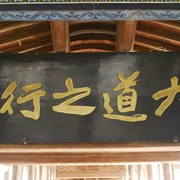 大道之行